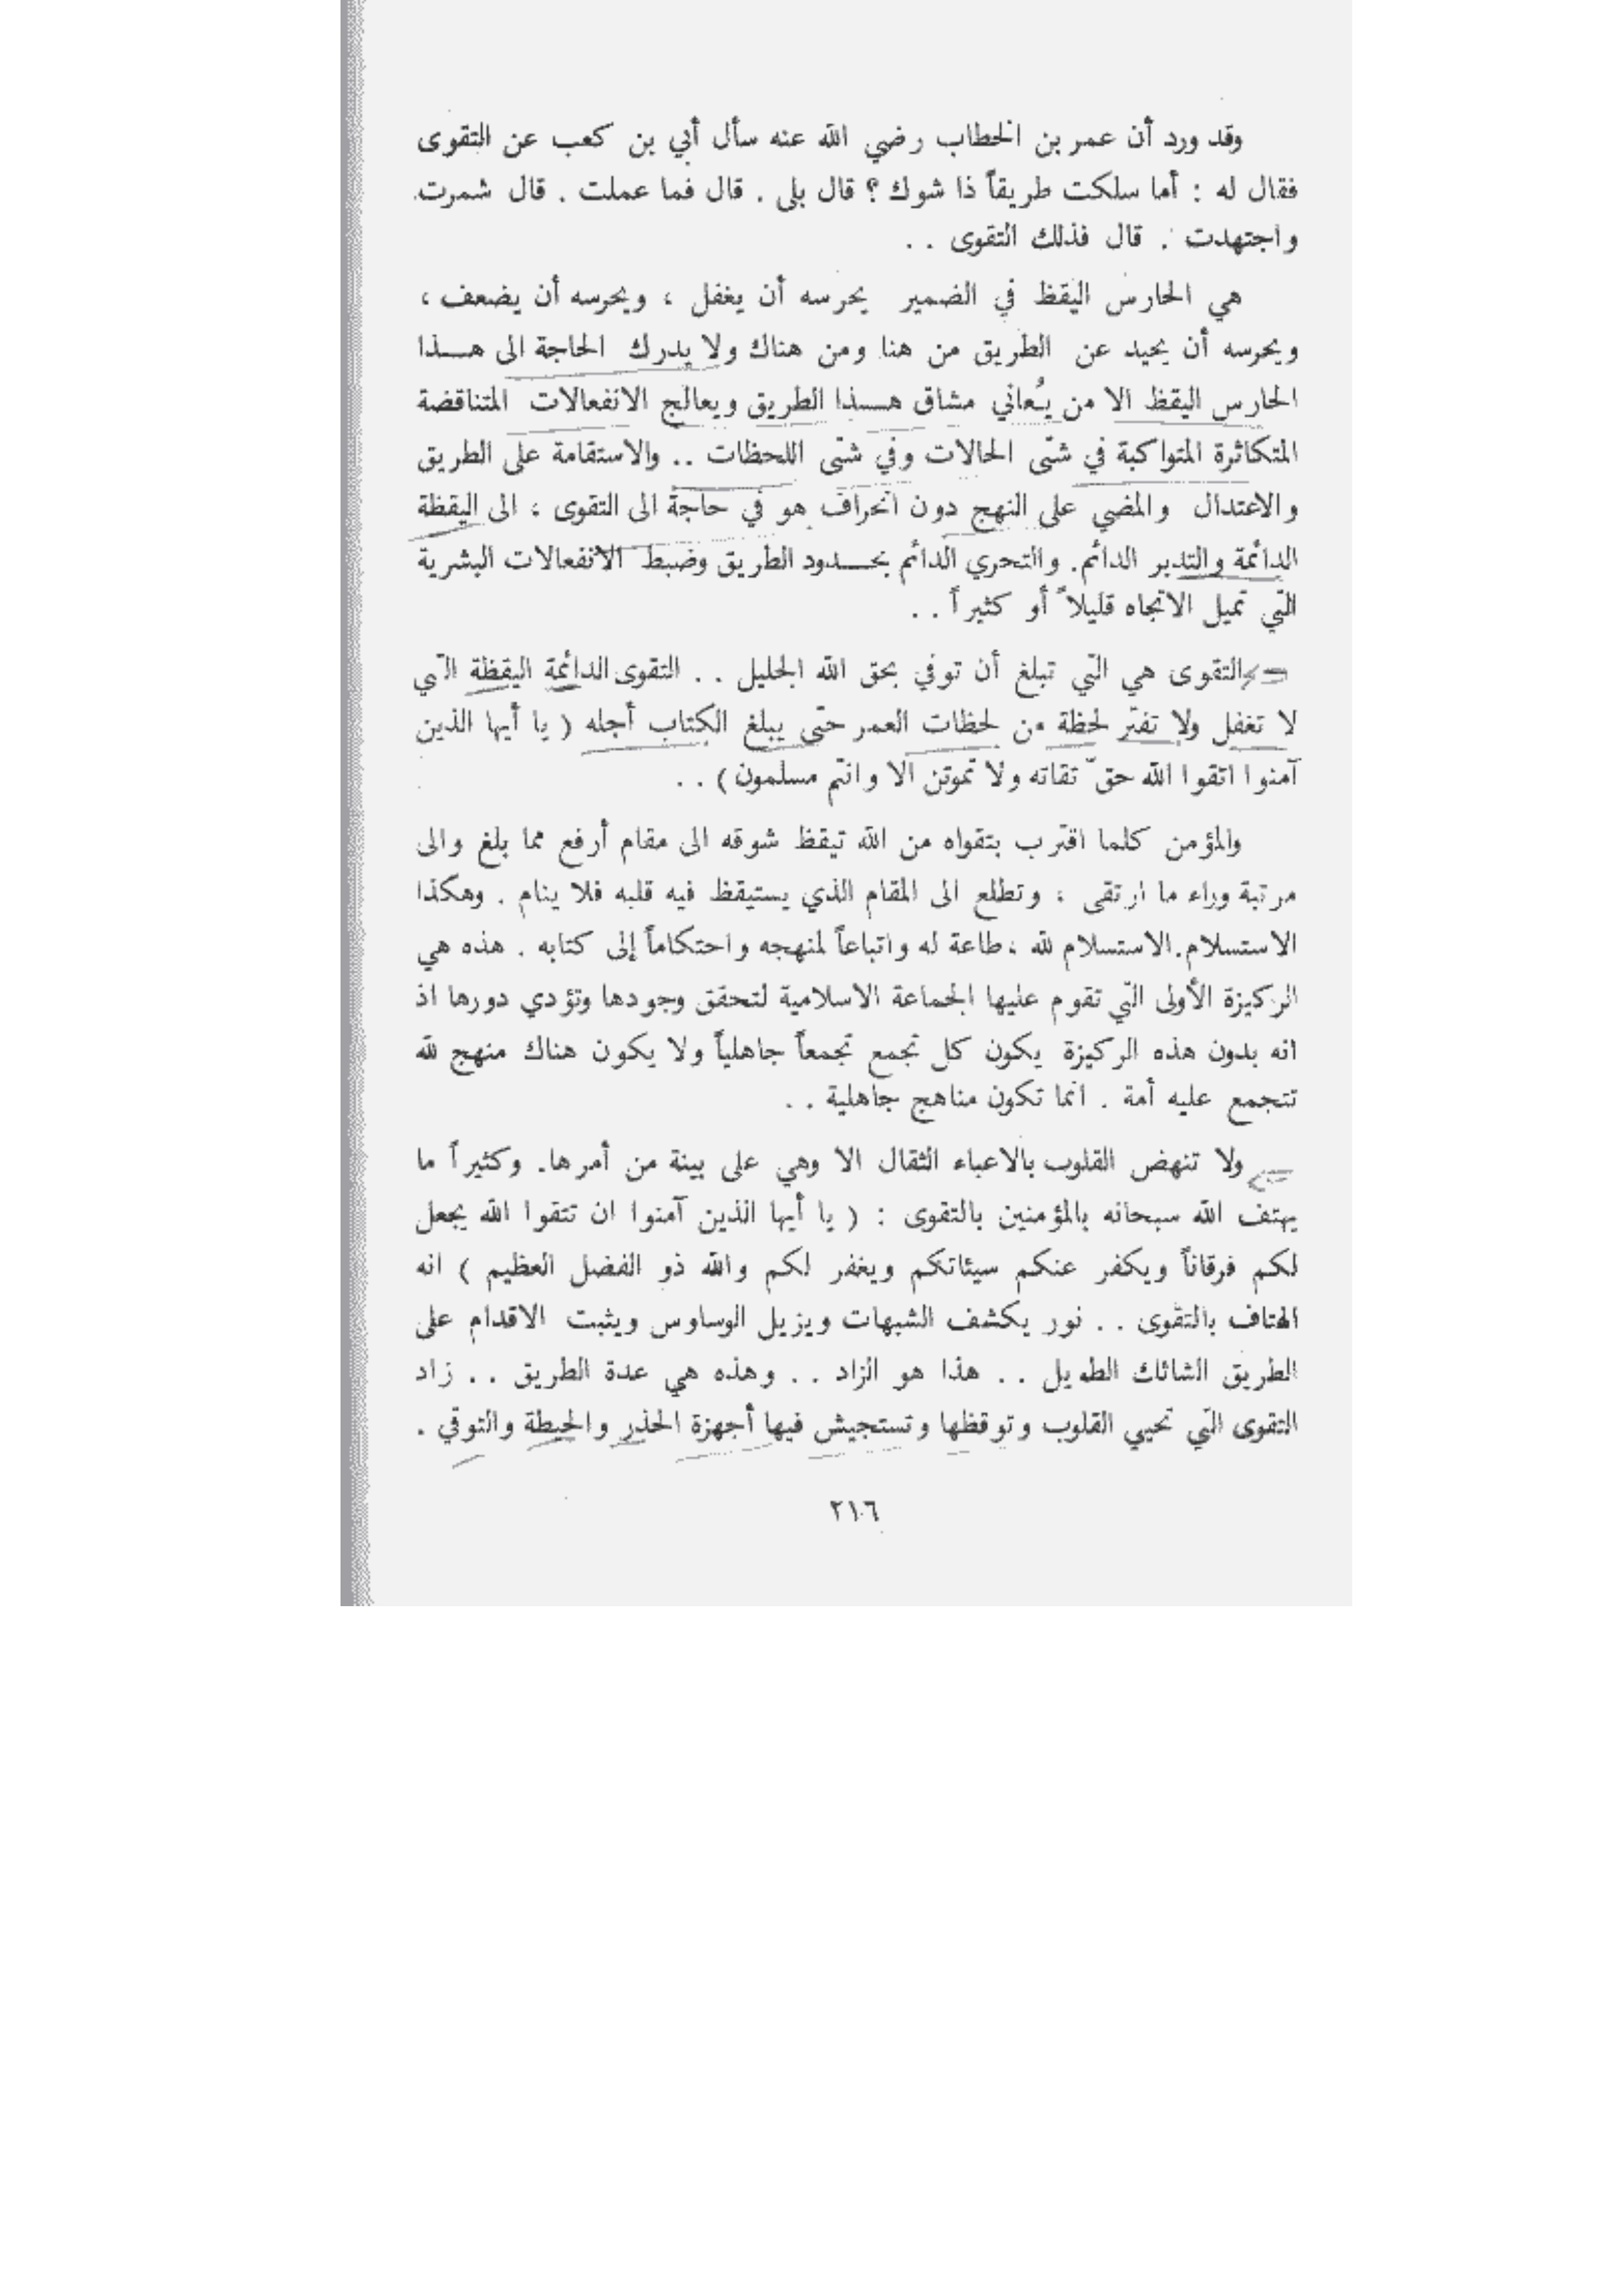 وقد ورد أن عمر بن الخطاب رضي الله عنه سأل أبي بن كعب عن التقوى
فقال له : أما سلكت طريقاً ذا شوك ؟ قال بلى . قال فما عملت . قال شمرت
واجتهدت . قال فذلك التقوى . .
هي الحارس اليقظ في الضمير يحرسه أن يغفل ، ويحرسه أن يضعف ،
ويحرسه أن يحيد عن الطريق من هنا ومن هناك ولا يدرك الحاجة الى هـــذا
الحارس اليقظ الا من يُعاني مشاق هـــذا الطريق ويعالج الانفعالات المتناقضة
المتكاثرة المتواكبة في شتّى الحالات وفي شتّى اللحظات .. والاستقامة على الطريق
والاعتدال والمضي على النهج دون انحراف هو في حاجة الى التقوى ، الى اليقظة
الدائمة والتدبر الدائم. والتحري الدائم بحـــدود الطريق وضبط الانفعالات البشرية
التّي تميل الاتجاه قليلاً أو كثيراً . .
التقوى هي التّي تبلغ أن توفي بحق الله الجليل . . التقوى الدائمة اليقظة التّي
لا تغفل ولا تفتّر لحظة من لحظات العمر حتّى يبلغ الكتاب أجله ( يا أيها الذين
آمنوا اتقوا الله حقّ تقاته ولا تموتن الا وانتم مسلمون ) . .
والمؤمن كلما اقتّرب بتقواه من الله تيقظ شوقه الى مقام أرفع مما بلغ والى
مرتبة وراء ما ارتقى ، وتطلع الى المقام الذي يستيقظ فيه قلبه فلا ينام . وهكذا
الاستسلام.الاستسلام لله ، طاعة له واتباعاً لمنهجه واحتكاماً إلى كتابه . هذه هي
الركيزة الأولى التّي تقوم عليها الجماعة الاسلامية لتحقق وجودها وتؤدي دورها اذ
انه بدون هذه الركيزة يكون كل تجمع تجمعاً جاهلياً ولا يكون هناك منهج لله
تتجمع عليه أمة . انما تكون مناهج جاهلية . .
ولا تنهض القلوب بالاعباء الثقال الا وهي على بينة من أمرها. وكثيراً ما
يهتف الله سبحانه بالمؤمنين بالتقوى : ( يا أيها الذين آمنوا ان تتقوا الله يجعل
لكم فرقاناً ويكفر عنكم سيئاتكم ويغفر لكم والله ذو الفضل العظيم ) انه
الهتاف بالتقوى . . نور يكشف الشبهات ويزيل الوساوس ويثبت الاقدام على
الطريق الشائك الطويل . . هذا هو الزاد . . وهذه هي عدة الطريق . . زاد
التقوى التّي تحيي القلوب وتوقظها وتستجيش فيها أجهزة الحذر والحيطة والتوقي .
٢١٦